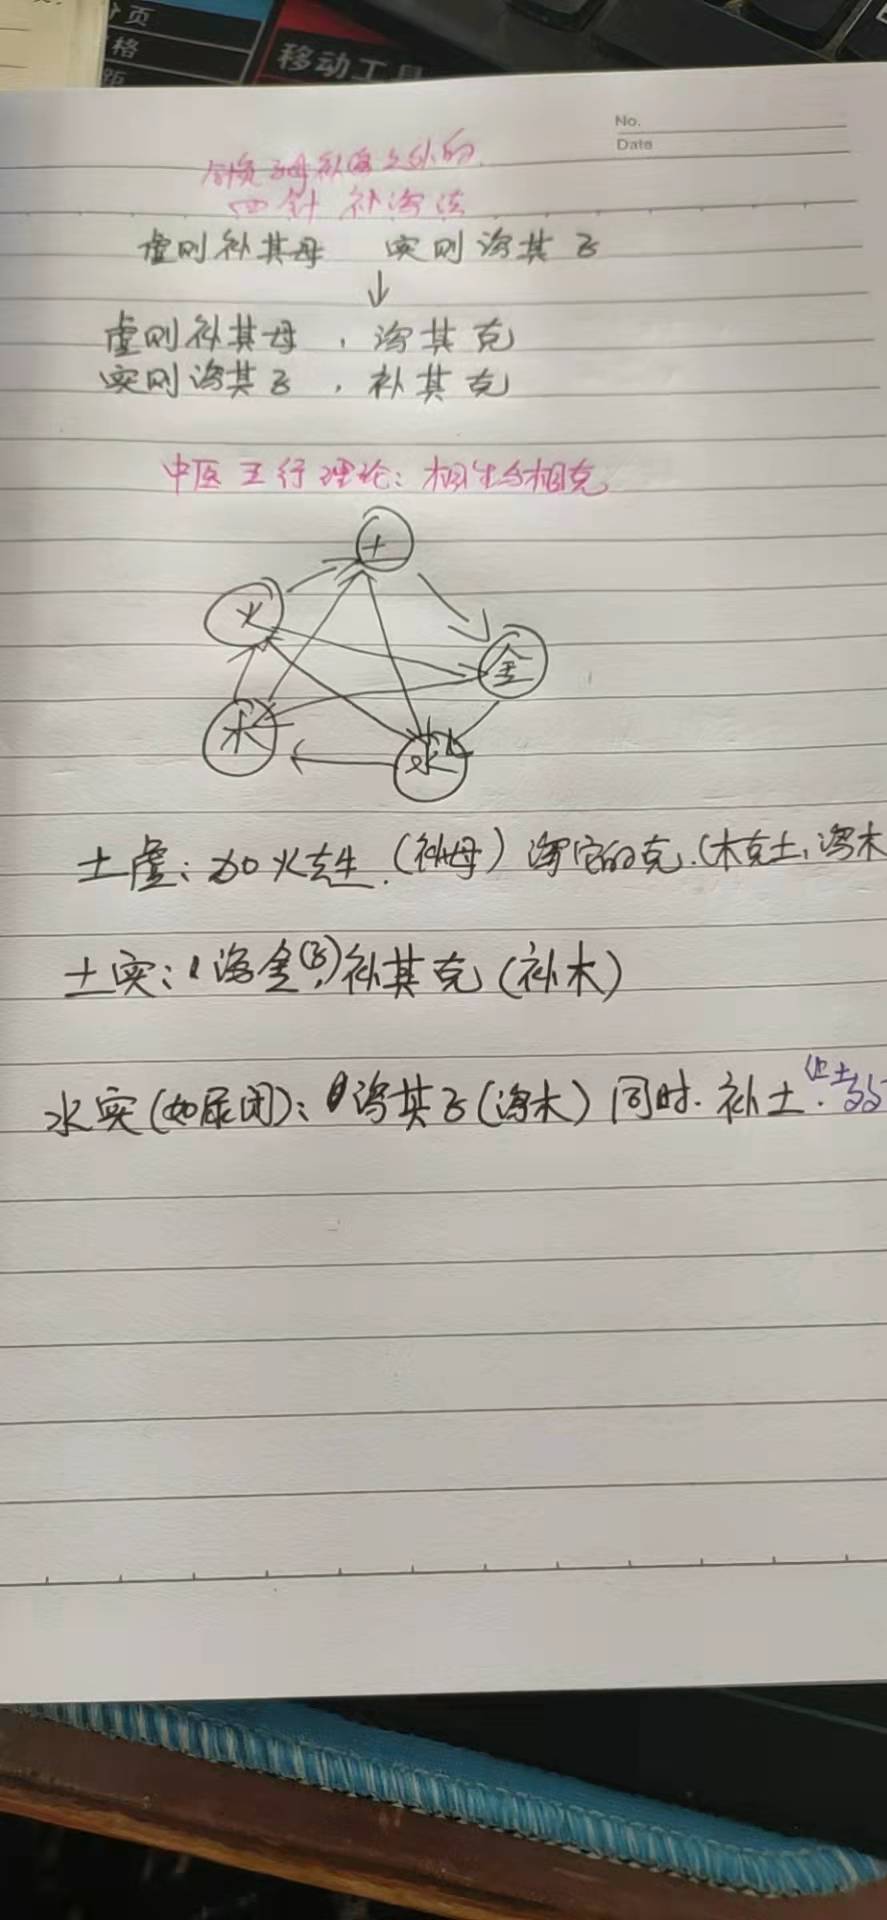 页
格
距
移动工具
No.
Date
子母补泻之外的
四针 补泻法
虚则补其母 实则泻其子
↓
虚则补其母,泻其克
实则泻其子,补其克
中医五行理论:相生与相克
土
火
金
木
水
土虚:加火去生.(补母)泻它的克.(木克土,泻木
土实:泻金(子),补其克(补木)
水实(如尿闭):泻其子(泻木)同时.补土.